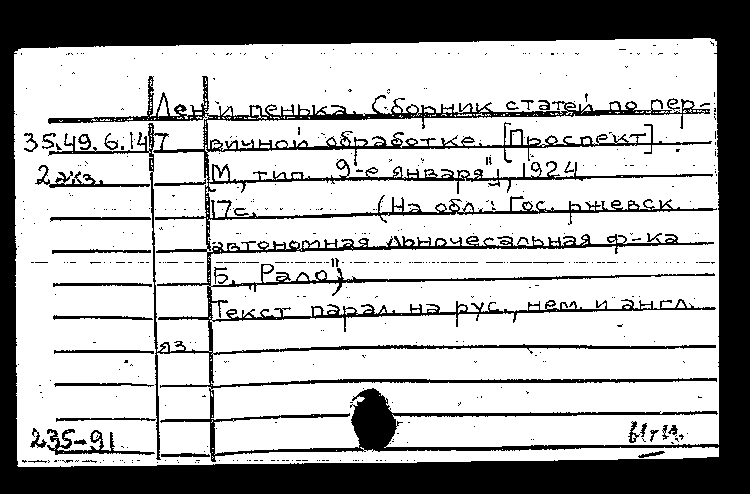 Лен и пенька. Сборник статей по пер-
35.49.6.147 вичной обработке. [Проспект].
2 экз. [М., тип. "9-е января"], 1924
17с. (На обл.: Гос. ржевск.
автономная льночесальная ф-ка
Б. "Рало").
Текст парал. на рус., нем. и англ.
яз.
235-91